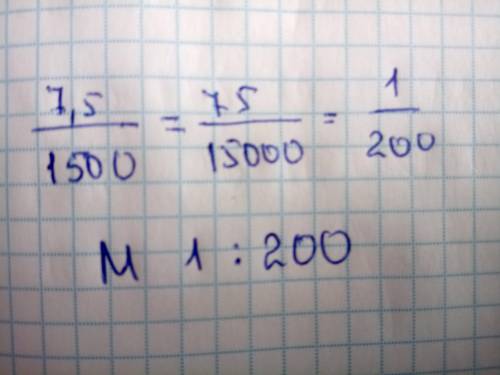 7,5/1500 = 75/15000 = 1/200
М 1 : 200